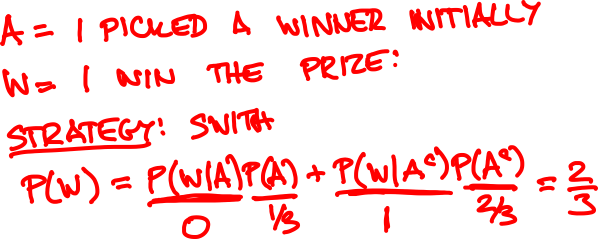 A = I PICKED A WINNER INITIALLY
W = I WIN THE PRIZE:
STRATEGY: SWITH
P(W) = P(W|A)P(A) + P(W|Aᶜ)P(Aᶜ) = 2/3
0 1/3 1 2/3